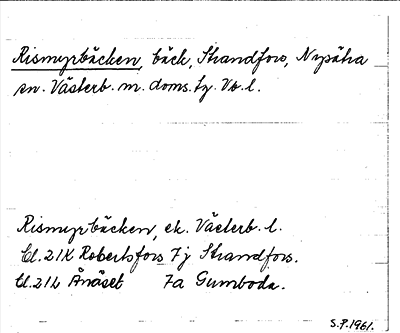 Rismyrbäcken, bäck, Strandfors, Nysätra
sn. Västerb. m. doms. tg. Vb. l.
Rismyrbäcken, ek. Västerb. l.
bl. 21K Robertsfors 7j Strandfors.
bl. 21L Ånäset 7a Gumboda.
S.P. 1961.